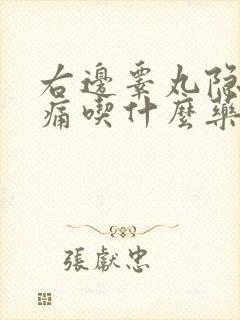 右邊睾丸隐
痛喫什麼藥
張獻忠